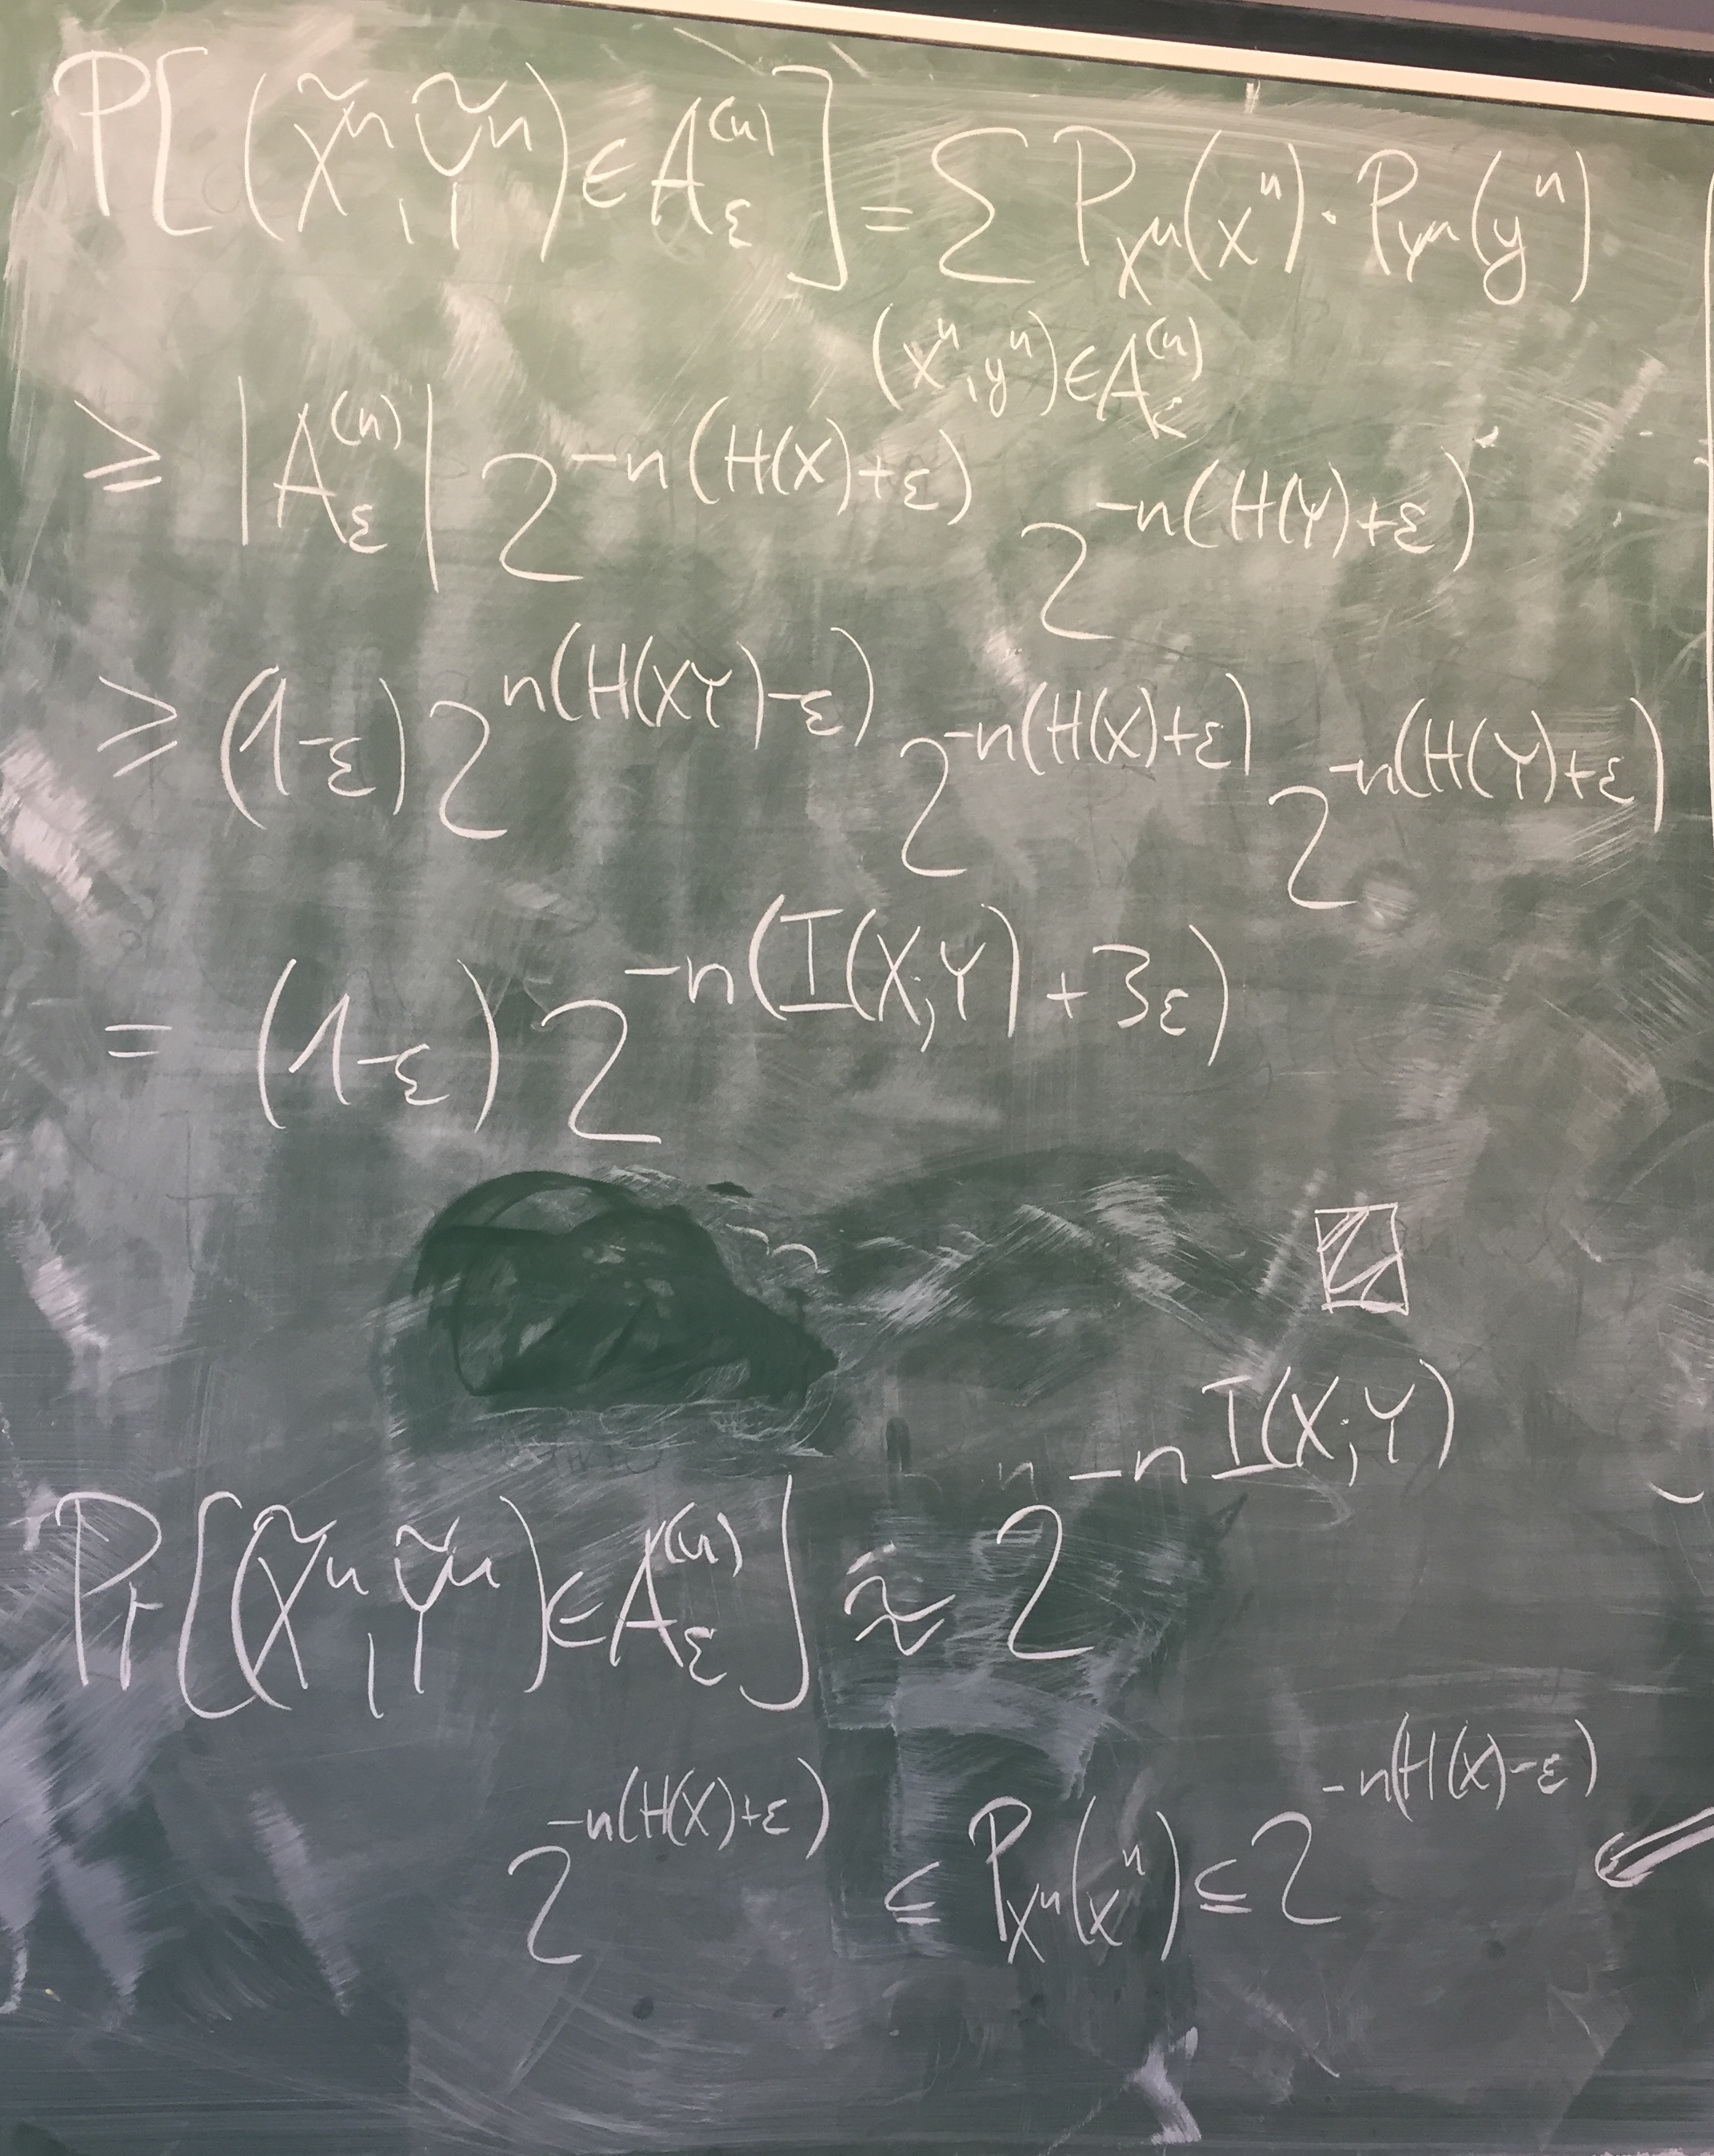 P[(X̃ⁿ, Ỹⁿ) ∈ A_ε^(n)] = Σ P_Xⁿ(xⁿ) · P_Yⁿ(yⁿ)
(xⁿ, yⁿ) ∈ A_ε^(n)
≥ |A_ε^(n)| 2^{-n(H(X)+ε)} 2^{-n(H(Y)+ε)}
≥ (1-ε) 2^{n(H(XY)-ε)} 2^{-n(H(X)+ε)} 2^{-n(H(Y)+ε)}
= (1-ε) 2^{-n(I(X;Y)+3ε)}
Pr[(X̃ⁿ, Ỹⁿ) ∈ A_ε^(n)] ≈ 2^{-n I(X;Y)}
2^{-n(H(X)+ε)} ≤ P_Xⁿ(xⁿ) ≤ 2^{-n(H(X)-ε)}